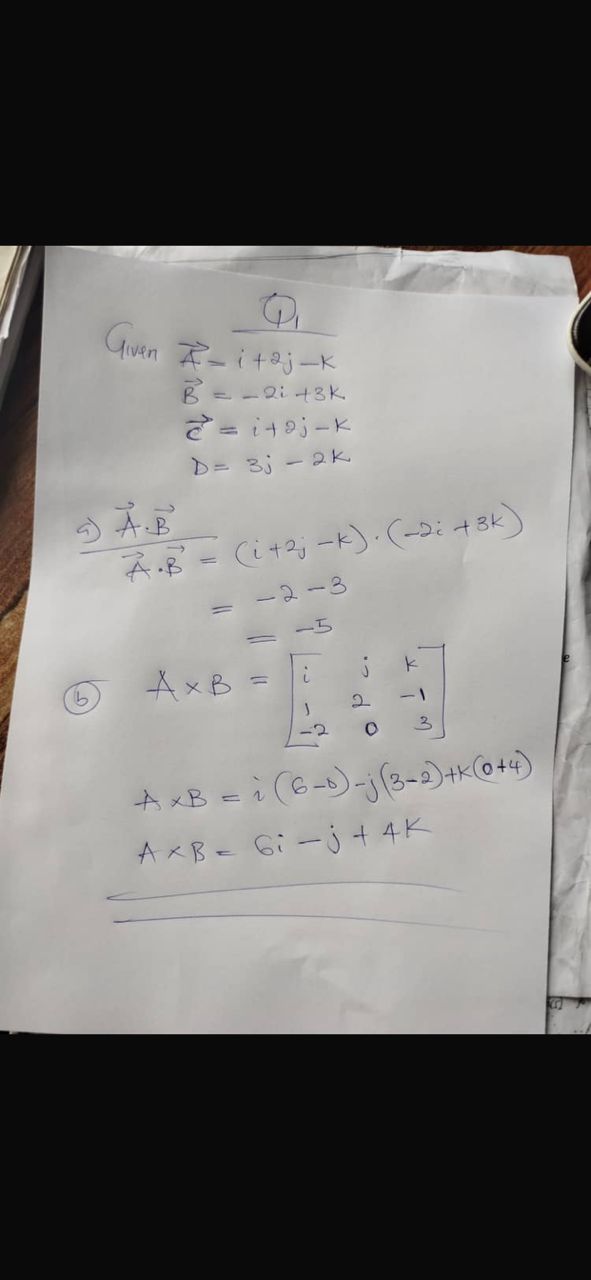 Q1
Given A⃗ = i+2j-k
B⃗ = -2i+3k
C⃗ = i+2j-k
D = 3j - 2k
a) A⃗.B⃗
A⃗.B⃗ = (i+2j-k).(-2i+3k)
= -2-3
= -5
(b) A×B = [i j k
1 2 -1
-2 0 3]
A×B = i(6-0)-j(3-2)+k(0+4)
A×B = 6i-j+4k